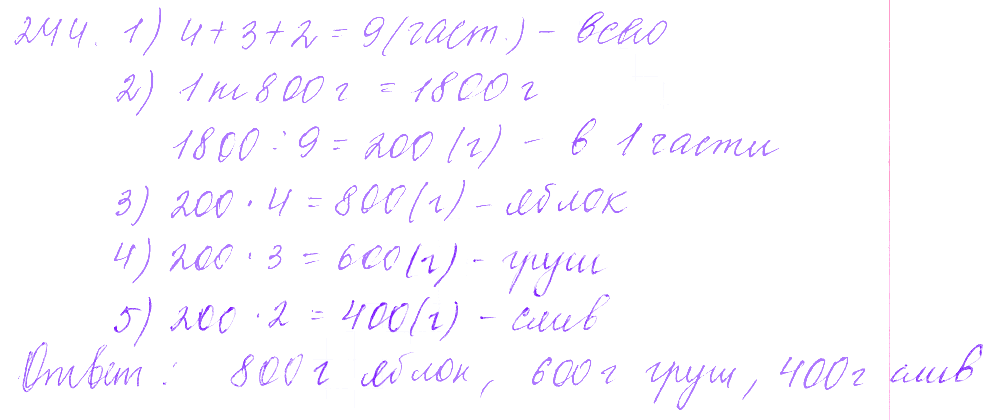 244. 1) 4+3+2=9(част.) – всего
2) 1 кг 800 г = 1800 г
1800 : 9 = 200 (г) – в 1 части
3) 200 · 4 = 800(г) – яблок
4) 200 · 3 = 600(г) – груш
5) 200 · 2 = 400(г) – слив
Ответ: 800 г яблок, 600 г груш, 400 г слив